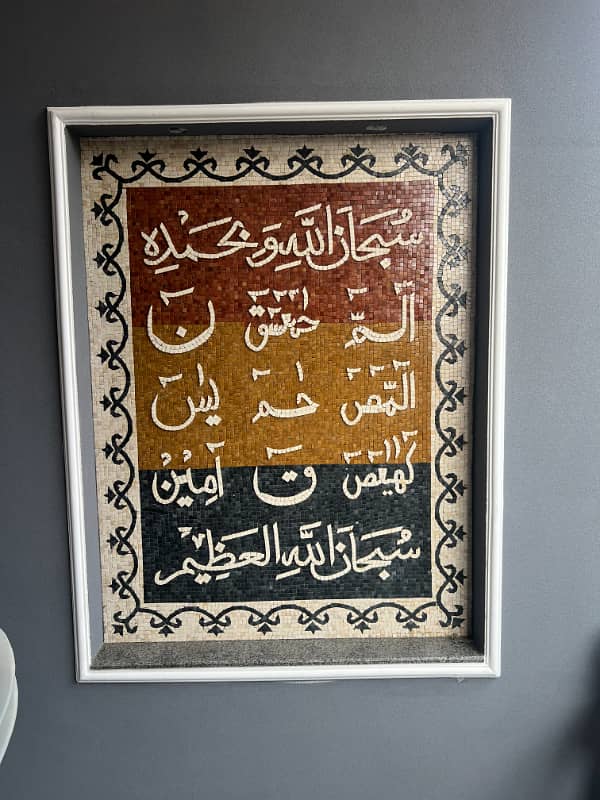 سُبْحَانَ اللَّهِ وَبِحَمْدِهِ
الٓمّٓ حٰمٓعٓسٓقٓ نٓ
الٓمّٓصٓ حٰمٓ يٰسٓ
كٓهٰيٰعٓصٓ قٓ اٰمِيْنْ
سُبْحَانَ اللَّهِ الْعَظِيْمِ